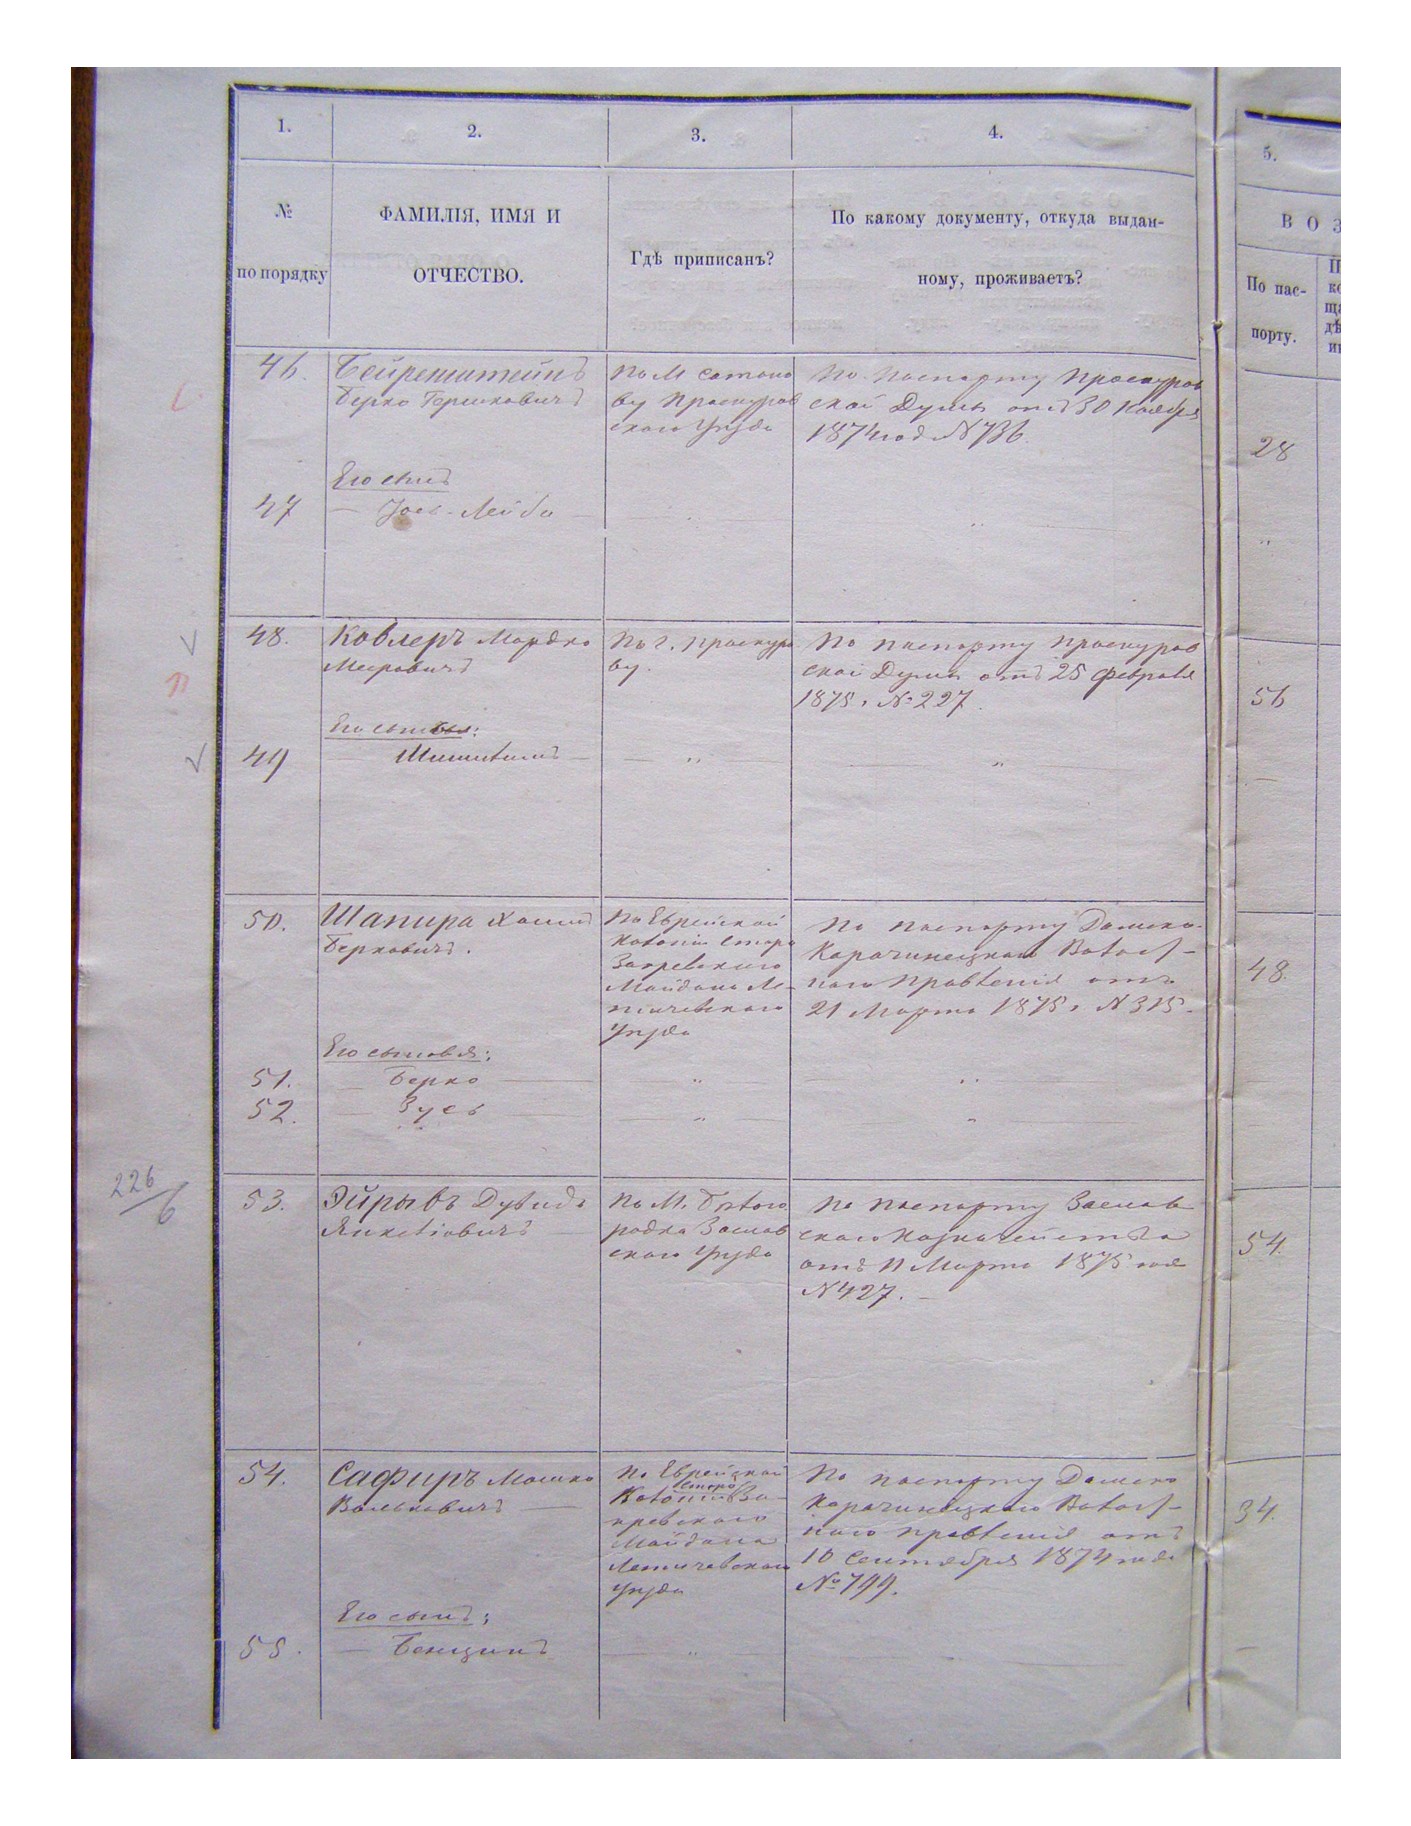 1.
2.
3.
4.
5.
№
по порядку
ФАМИЛІЯ, ИМЯ И
ОТЧЕСТВО.
Гдѣ приписанъ?
По какому документу, откуда выдан-
ному, проживаетъ?
В О З
По пас-
порту.
46.
Бейренштейнъ
Берко Гершковичъ
По М Сатано
ву Проскуров
скаго Уѣзда
По Паспорту Проскуров
ской Думы отъ 30 Ноября
1874 год №736.
28
Его сынъ
47
— Іось-Лейба —
"
48.
Ковлеръ Мордко
Мееровичъ
По г. Проскуро
ву.
По паспорту Проскуров
ской Думы отъ 25 Февраля
1875 г №227.
56
Его сыновья:
49
"
50.
Шапира Хаимъ
Берковичъ.
По Еврейской
Колоніи Старо
Закревскаго
Майдана Ле-
тичевскаго
Уѣзда
По паспорту Домско-
Карачинецкаго Волост-
наго Правленія отъ
21 Марта 1875 г №315.
48.
Его сыновья:
51.
— Берко —
"
52.
— Зусь
"
226/6
53.
Эйрывъ Дувидъ
Янкеліовичъ
По М. Бѣлого
родка Заслав
скаго Уѣзда
По паспорту Заслав
скаго Казначейства
отъ 11 Марта 1875 года
№427.
54.
54.
Сафиръ Мошко
Вольковичъ
По Еврейской
Колоніи Старо За-
кревскаго
Майдана
Летичевскаго
Уѣзда
По паспорту Домско
Карачинецкаго Волост-
наго правленія отъ
10 Сентября 1874 года
№799.
34.
Его сынъ:
55.
— Бенціинъ
"